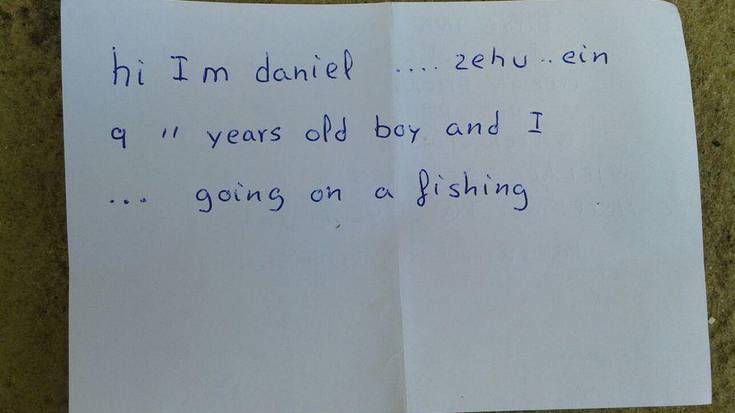 hi Im daniel .... zehu .. ein
9 " years old boy and I
... going on a fishing